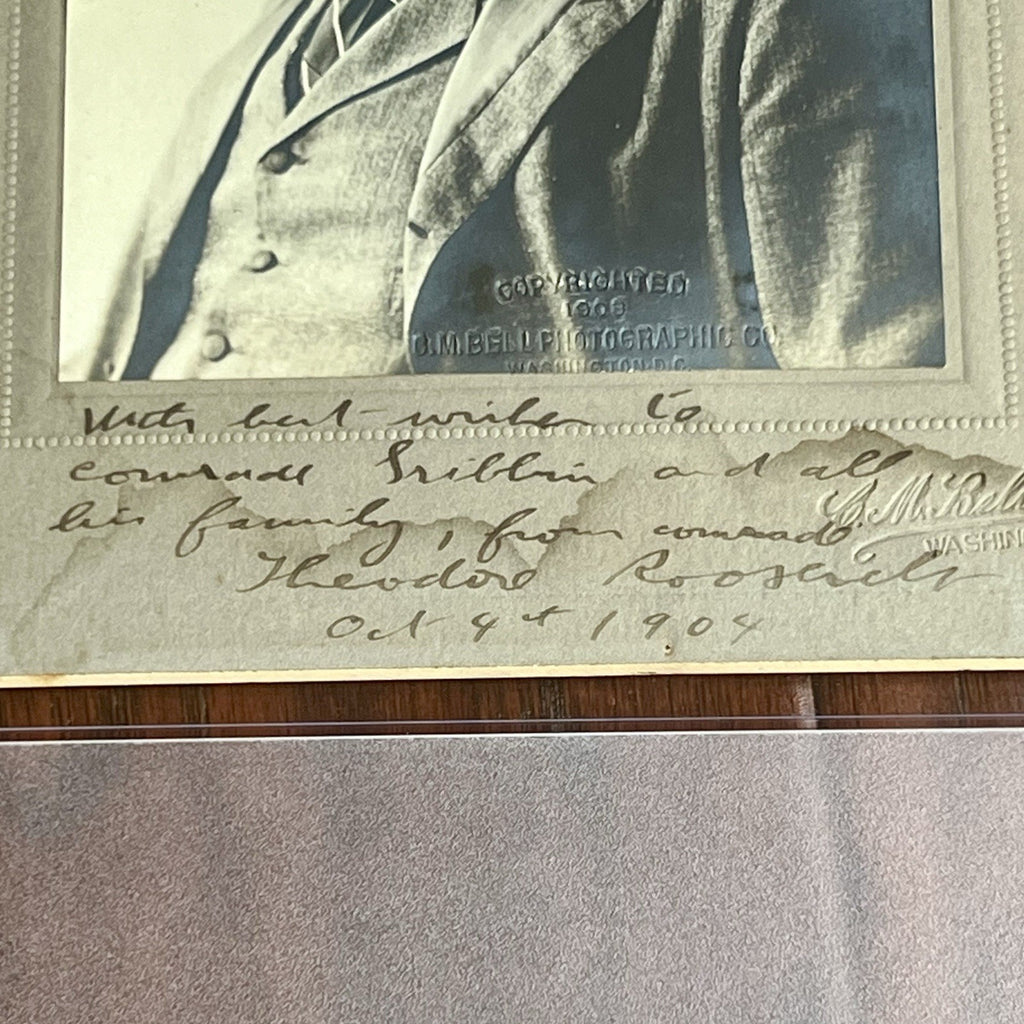 COPYRIGHTED
1903
C.M. BELL PHOTOGRAPHIC CO.
WASHINGTON D.C.
With best wishes to
comrade and all
his family, from comrade
Theodore Roosevelt
Oct 4th 1904
C. M. Bell
WASHIN